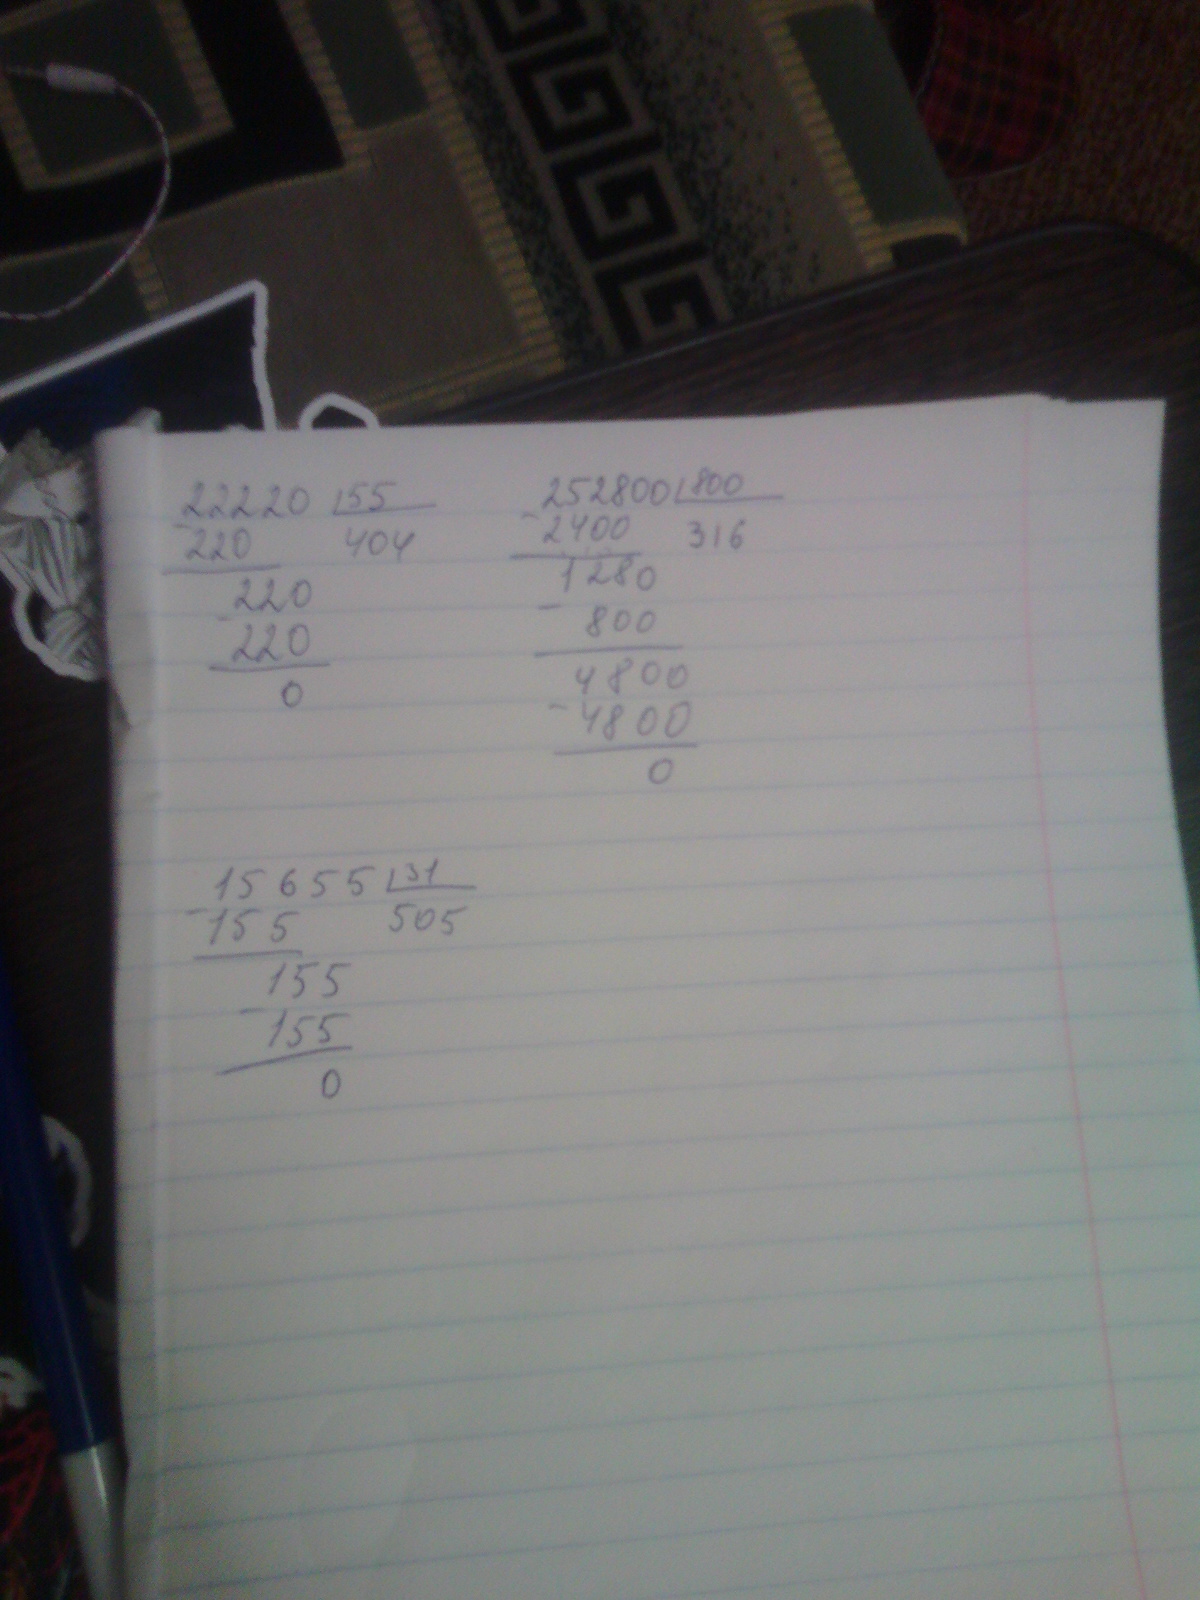 22220 55
- 220 404
220
- 220
0
252800 800
- 2400 316
1280
- 800
4800
- 4800
0
15655 31
- 155 505
155
- 155
0